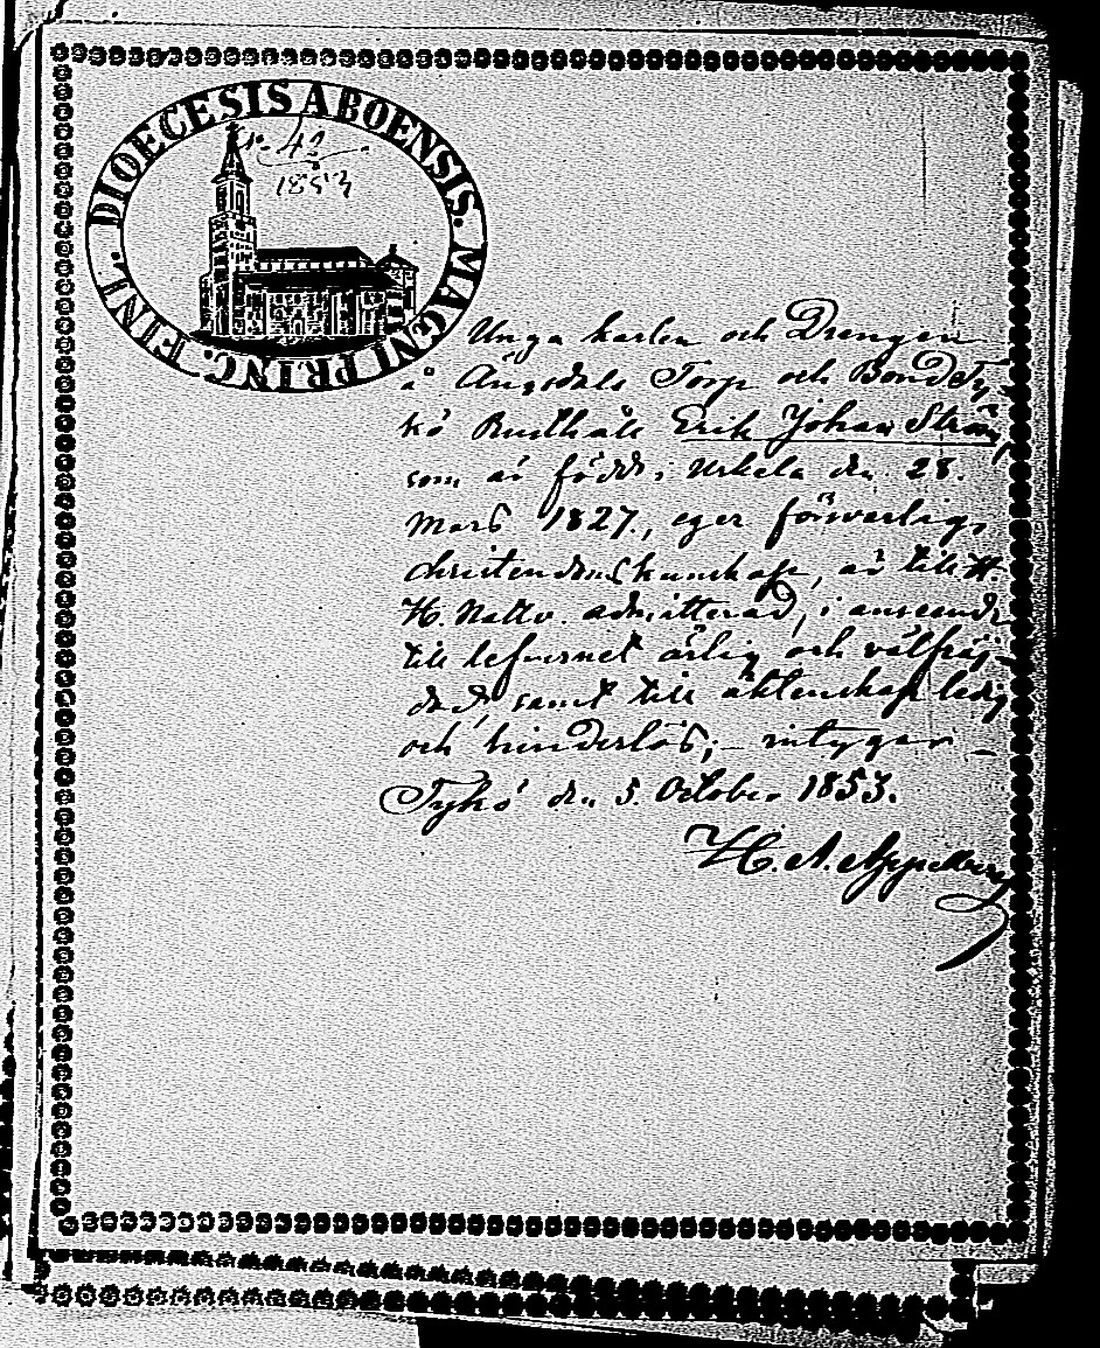 DIOECESIS ABOENSIS. MAGNI PRINC. FINL.
N. 42
1853
Unga karlen och Drengen
å Ängsdals Torp och Bond Ty-
kö Rusthåll Erik Johan Ström,
som är född i Uskela den 28.
Mars 1827., eger försvarlig
christendomskunskap, är till H.
H. Nattv. admitterad, i anseende
till lefvernet ärlig och välfräj-
dad, samt till äktenskap ledig
och hinderlös; – intygar –
Tykö den 5. October 1853.
H. A. Appelberg